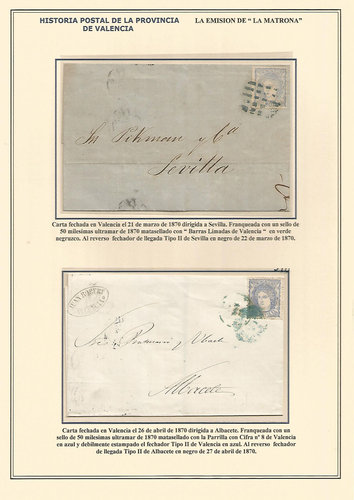 HISTORIA POSTAL DE LA PROVINCIA
DE VALENCIA
LA EMISION DE “ LA MATRONA”
y Cª
Sevilla
Carta fechada en Valencia el 21 de marzo de 1870 dirigida a Sevilla. Franqueada con un sello de
50 milesimas ultramar de 1870 matasellado con “ Barras Limadas de Valencia “ en verde
negruzco. Al reverso fechador de llegada Tipo II de Sevilla en negro de 22 de marzo de 1870.
Albacete
Carta fechada en Valencia el 26 de abril de 1870 dirigida a Albacete. Franqueada con un
sello de 50 milesimas ultramar de 1870 matasellado con la Parrilla con Cifra nº 8 de Valencia
en azul y debilmente estampado el fechador Tipo II de Valencia en azul. Al reverso fechador
de llegada Tipo II de Albacete en negro de 27 de abril de 1870.